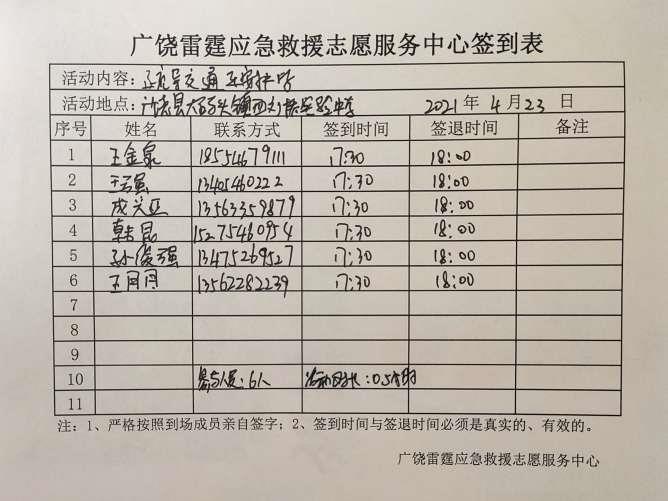 广饶雷霆应急救援志愿服务中心签到表
活动内容：疏导交通
活动地点：大码头镇 2021年4月23日
序号 姓名 联系方式 签到时间 签退时间 备注
1 王金泉 18554679111 17:30 18:00
2 王强 13405460222 17:30 18:00
3 成兴亚 13563359879 17:30 18:00
4 韩昆 15275460954 17:30 18:00
5 孙俊强 13475269527 17:30 18:00
6 王月月 13562282239 17:30 18:00
7
8
9
10 参与人员：6人 活动时长：0.5小时
11
注：1、严格按照到场成员亲自签字；2、签到时间与签退时间必须是真实的、有效的。
广饶雷霆应急救援志愿服务中心